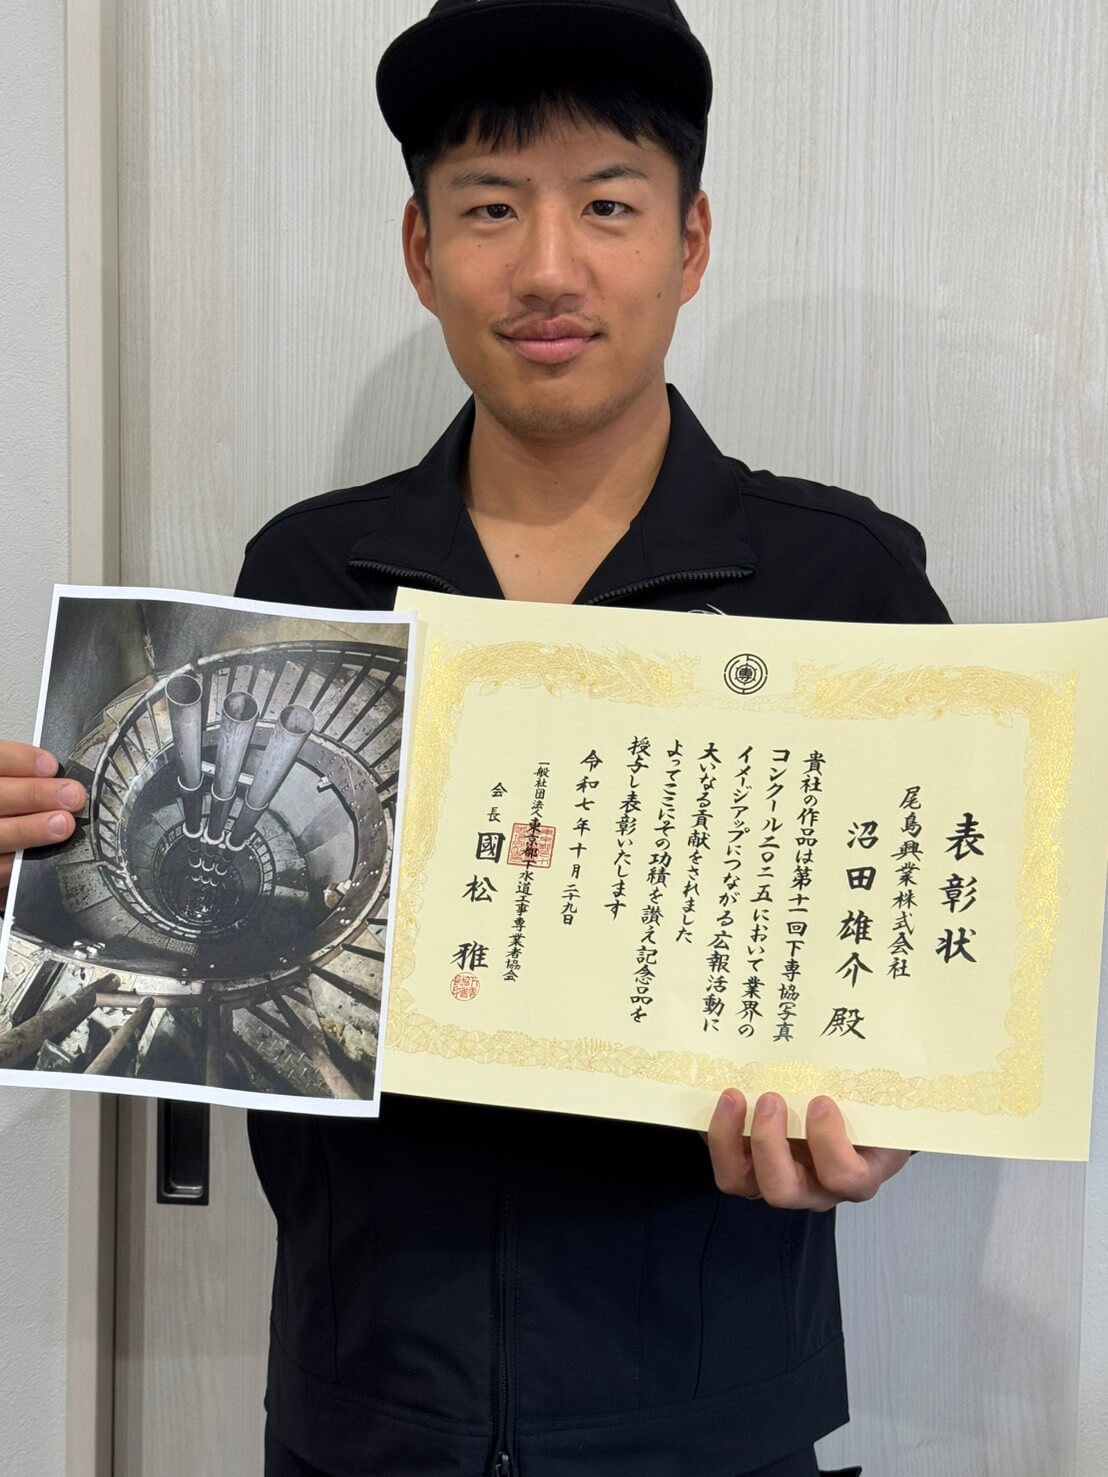 表彰状
尾島興業株式会社
沼田雄介 殿
貴社の作品は第十一回下専協写真
コンクール二〇二五において業界の
イメージアップにつながる広報活動に
大いなる貢献をされました
よってここにその功績を讃え記念品を
授与し表彰いたします
令和七年十月二十九日
一般社団法人東京都下水道工事専業者協会
会長 國松 雅